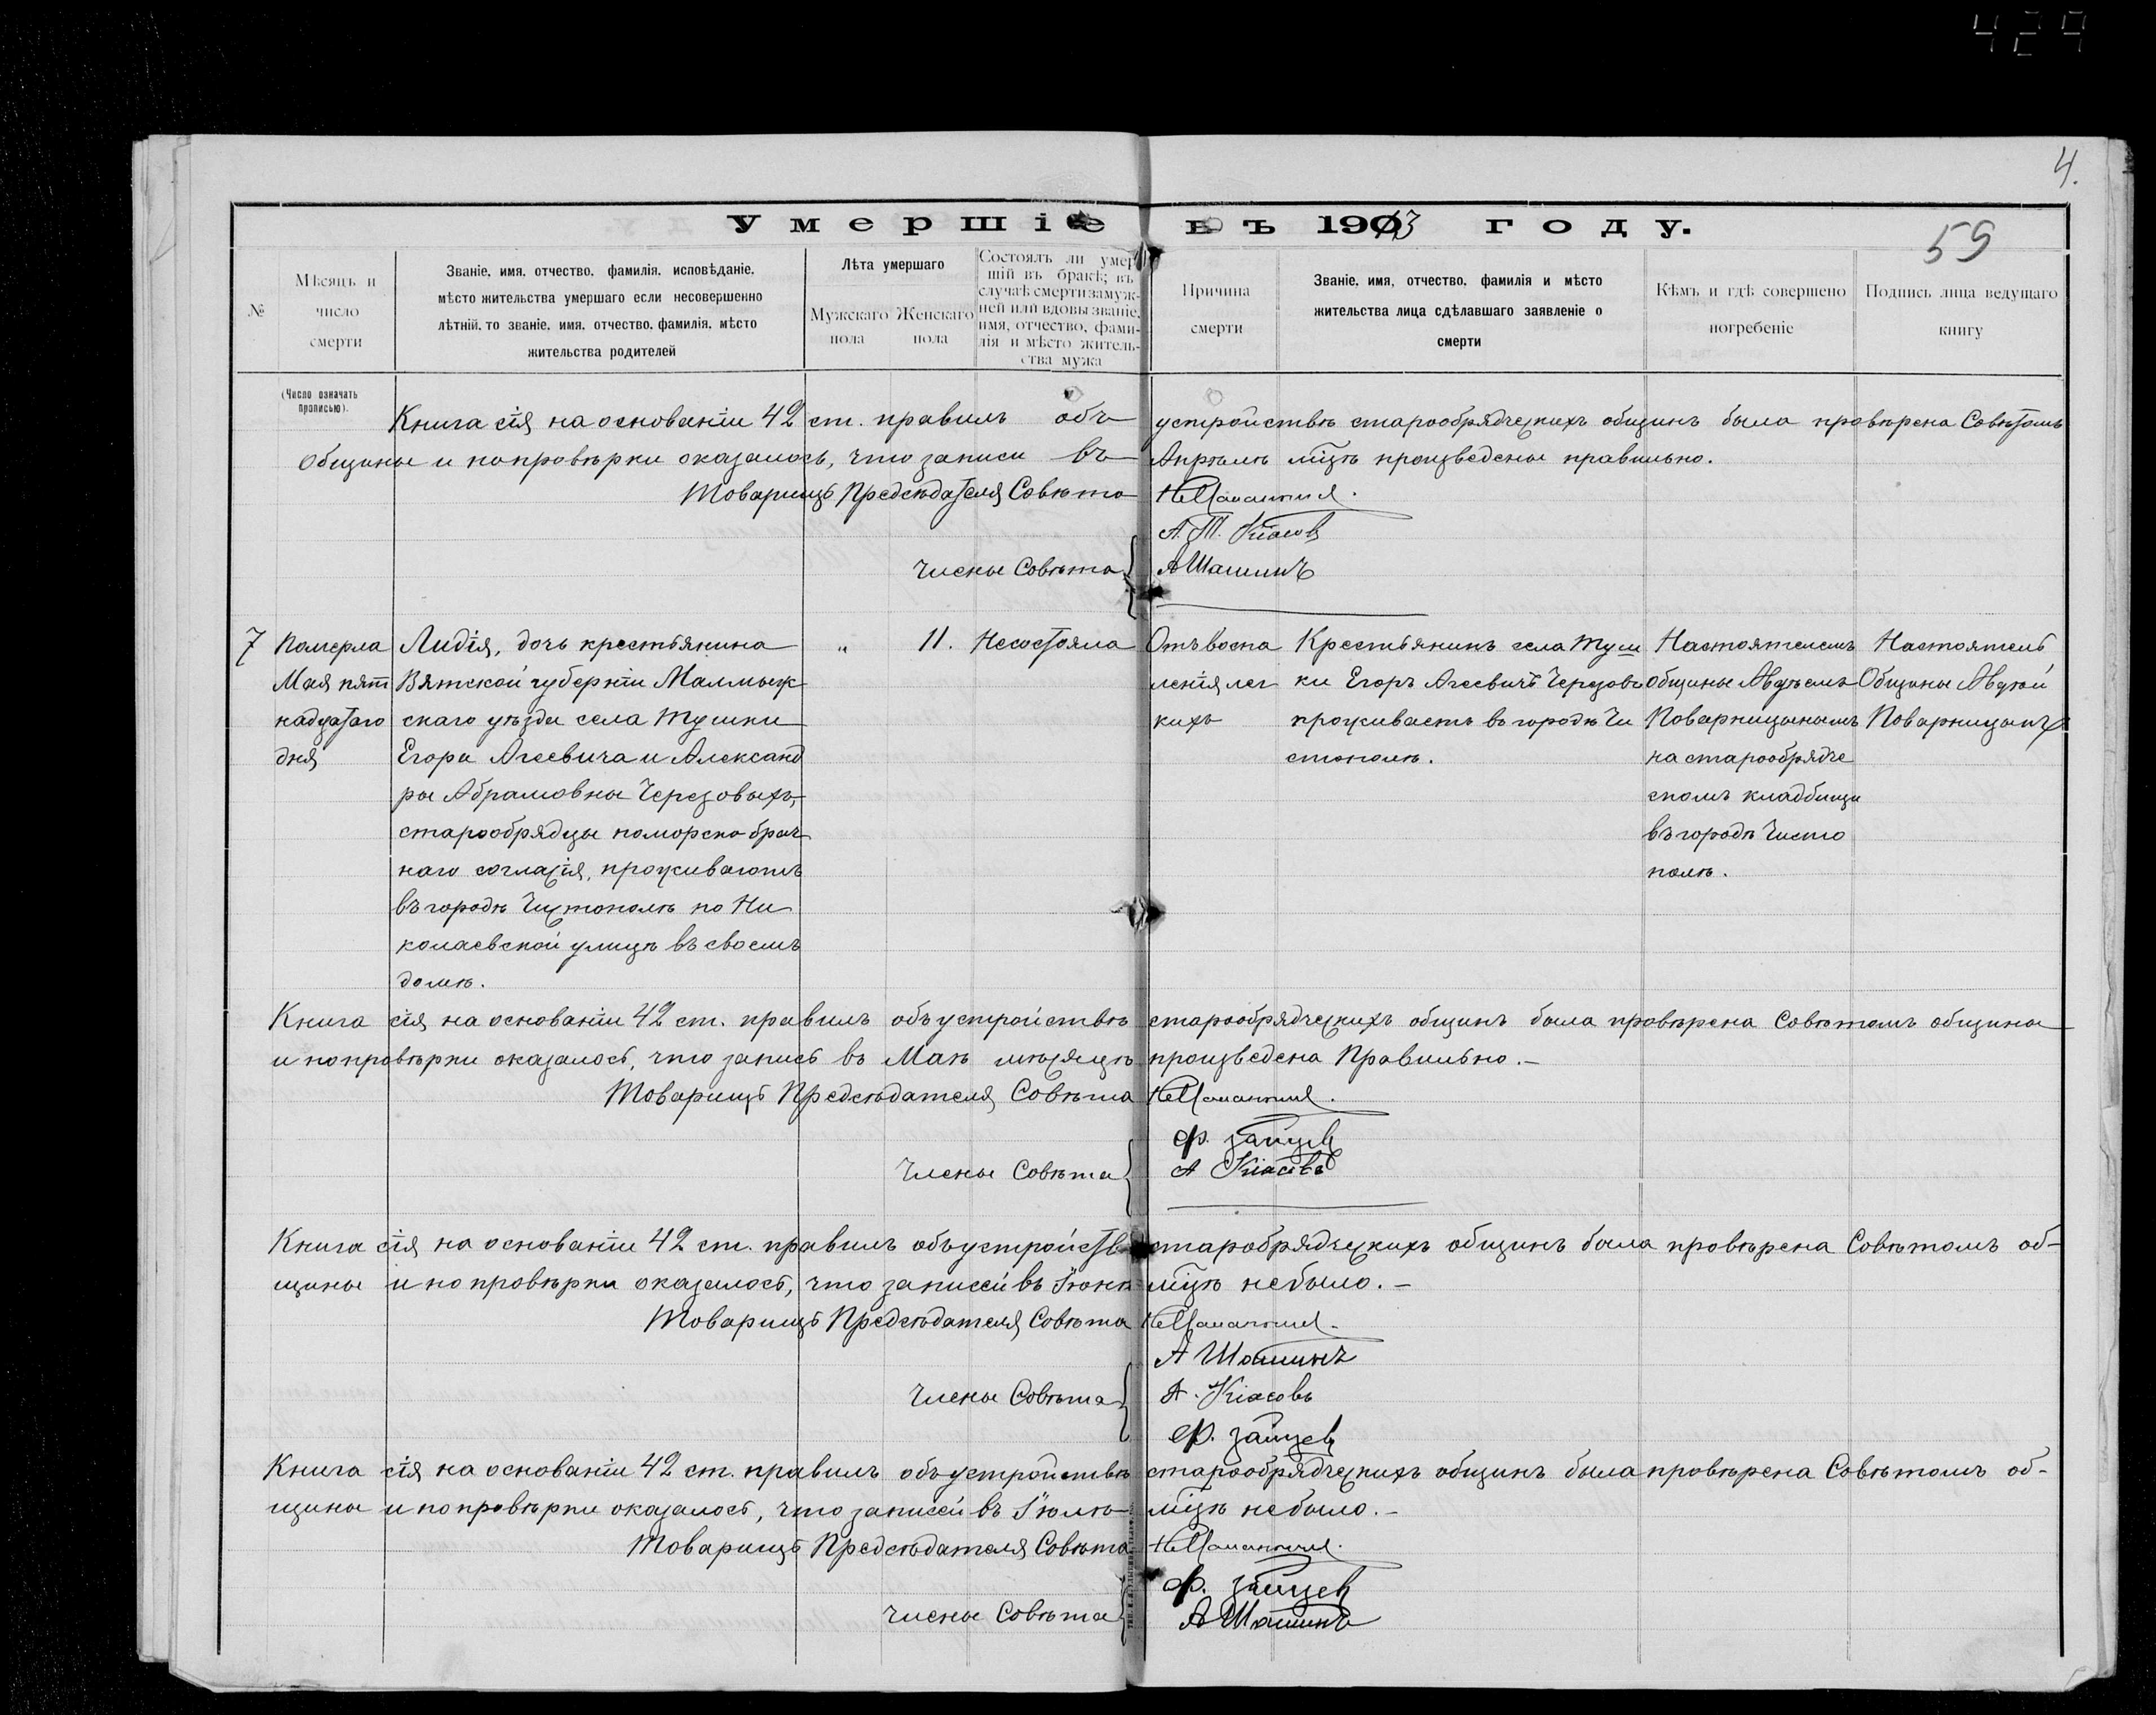 429
4.
59
Умершіе въ 1913 году.
№
Мѣсяцъ и
число
смерти
(Число означать
прописью).
Званіе, имя, отчество, фамилія, исповѣданіе,
мѣсто жительства умершаго если несовершенно
лѣтній, то званіе, имя, отчество, фамилія, мѣсто
жительства родителей
Лѣта умершаго
Мужскаго
пола
Женскаго
пола
Состоялъ ли умер
шій въ бракѣ; въ
случаѣ смерти замуж-
ней или вдовы званіе,
имя, отчество, фами-
лія и мѣсто житель-
ства мужа
Причина
смерти
Званіе, имя, отчество, фамилія и мѣсто
жительства лица сдѣлавшаго заявленіе о
смерти
Кѣмъ и гдѣ совершено
погребеніе
Подпись лица ведущаго
книгу
Книга сія на основаніи 42 ст. правилъ объ устройствѣ старообрядческихъ общинъ была провѣрена Совѣтомъ
Общины и попровѣрки оказалось, что записи въ Апрѣлѣ мцѣ произведены правильно.
Товарищъ Предсѣдателя Совѣта
А. Т. Кіасовъ
Члены Совѣта
АШашинъ
7
Померла
Мая пят
надцатаго
дня
Лидія, дочь крестьянина
Вятской губерніи Малмыж
скаго уѣзда села Тушки
Егора Агеевича и Александ
ры Абрамовны Черезовыхъ,
старообрядцы поморско брач
наго согласія, проживаютъ
въ городѣ Чистополѣ по Ни
колаевской улицѣ въ своемъ
домѣ.
„
11.
Несостояла
Отъ воспа
ленія лег
кихъ
Крестьянинъ села Туш
ки Егоръ Агеевичъ Черезовъ
проживаетъ въ городѣ Чи
стополѣ.
Настоятелемъ
Общины Авдѣемъ
Поварницынымъ
на старообрядче
скомъ кладбищи
въ городѣ Чисто
полѣ.
Настоятель
Общины Авдѣй
Поварницынъ
Книга сія на основаніи 42 ст. правилъ объ устройствѣ старообрядческихъ общинъ была провѣрена Совѣтомъ общины
и попровѣрки оказалось, что запись въ Маѣ мѣсяцѣ произведена Правильно.—
Товарищъ Предсѣдателя Совѣта
Ф. Зайцевъ
Члены Совѣта
А Кіасовъ
Книга сія на основаніи 42 ст. правилъ объ устройств старобрядческихъ общинъ была провѣрена Совѣтомъ об-
щины и по провѣрки оказалось, что записей въ Іюнѣ мцѣ небыло.—
Товарищъ Предсѣдателя Совѣта
А Шашинъ
Члены Совѣта
А. Кіасовъ
Ф. Зайцевъ
Книга сія на основаніи 42 ст. правилъ объ устройствѣ старообрядческихъ общинъ была провѣрена Совѣтомъ об-
щины и по провѣрки оказалось, что записей въ Іюлѣ мцѣ небыло.—
Товарищъ Предсѣдателя Совѣта
Ф. Зайцевъ
Члены Совѣта
А Шашинъ